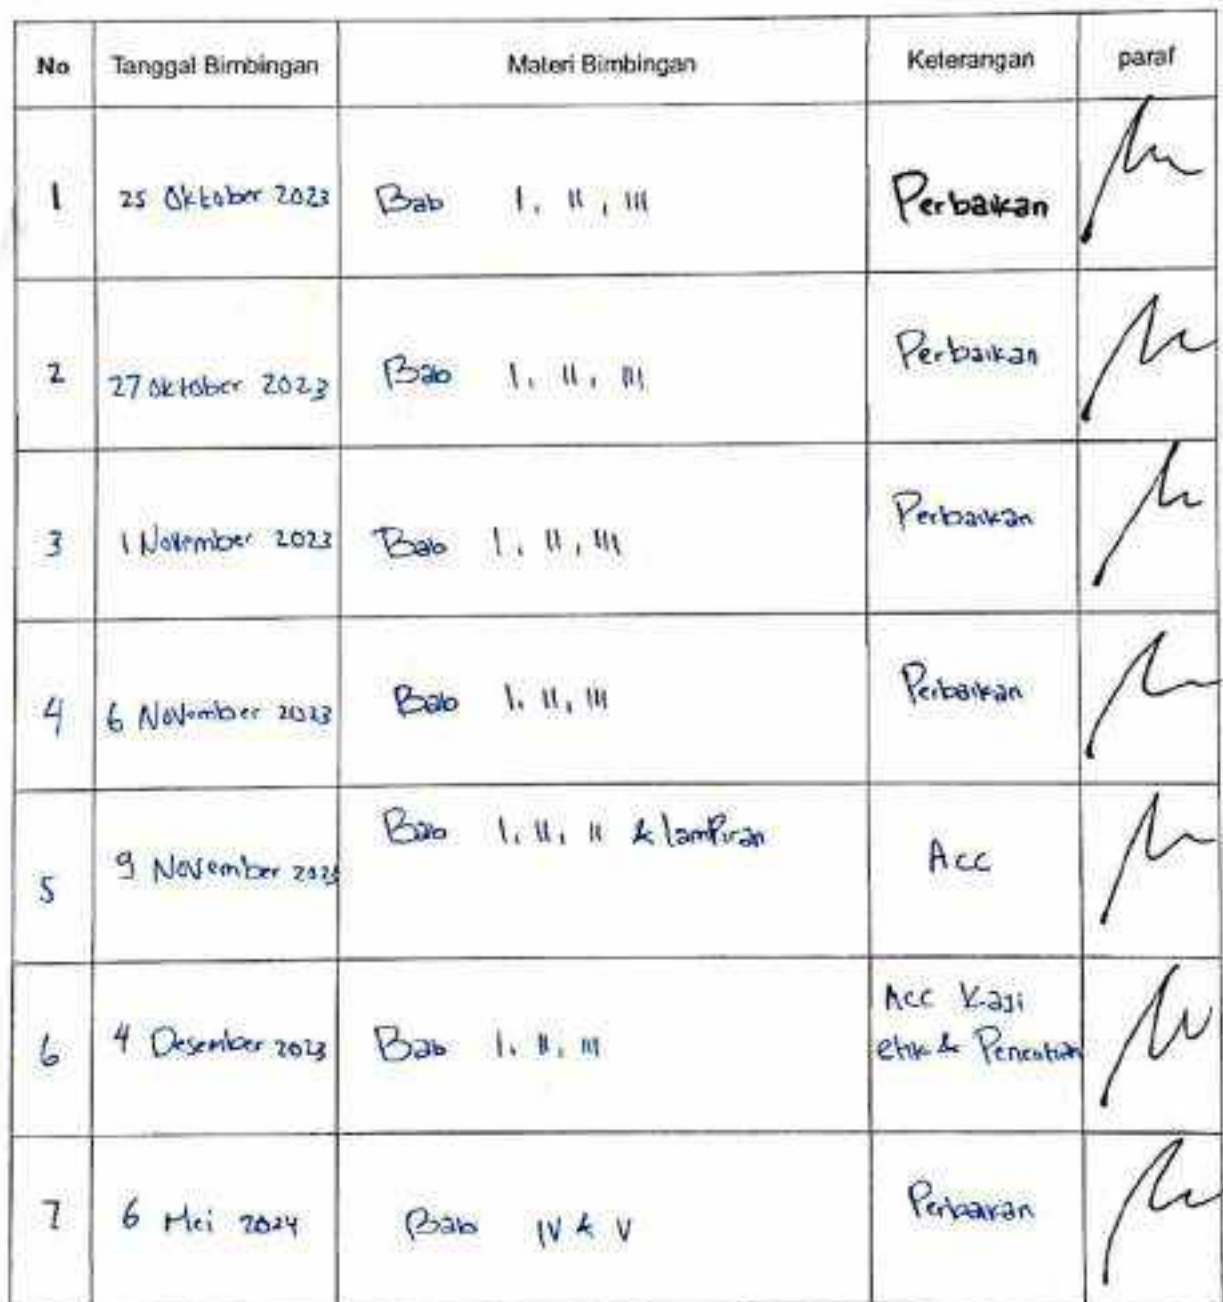 No Tanggal Bimbingan Materi Bimbingan Keterangan paraf
1 25 Oktober 2023 Bab I, II, III Perbaikan
2 27 Oktober 2023 Bab I, II, III Perbaikan
3 1 November 2023 Bab I, II, III Perbaikan
4 6 November 2023 Bab I, II, III Perbaikan
5 9 November 2023 Bab I, II, II & lampiran Acc
6 4 Desember 2023 Bab I, II, III Acc Kaji
etik & Penelitian
7 6 Mei 2024 Bab IV & V Perbaikan